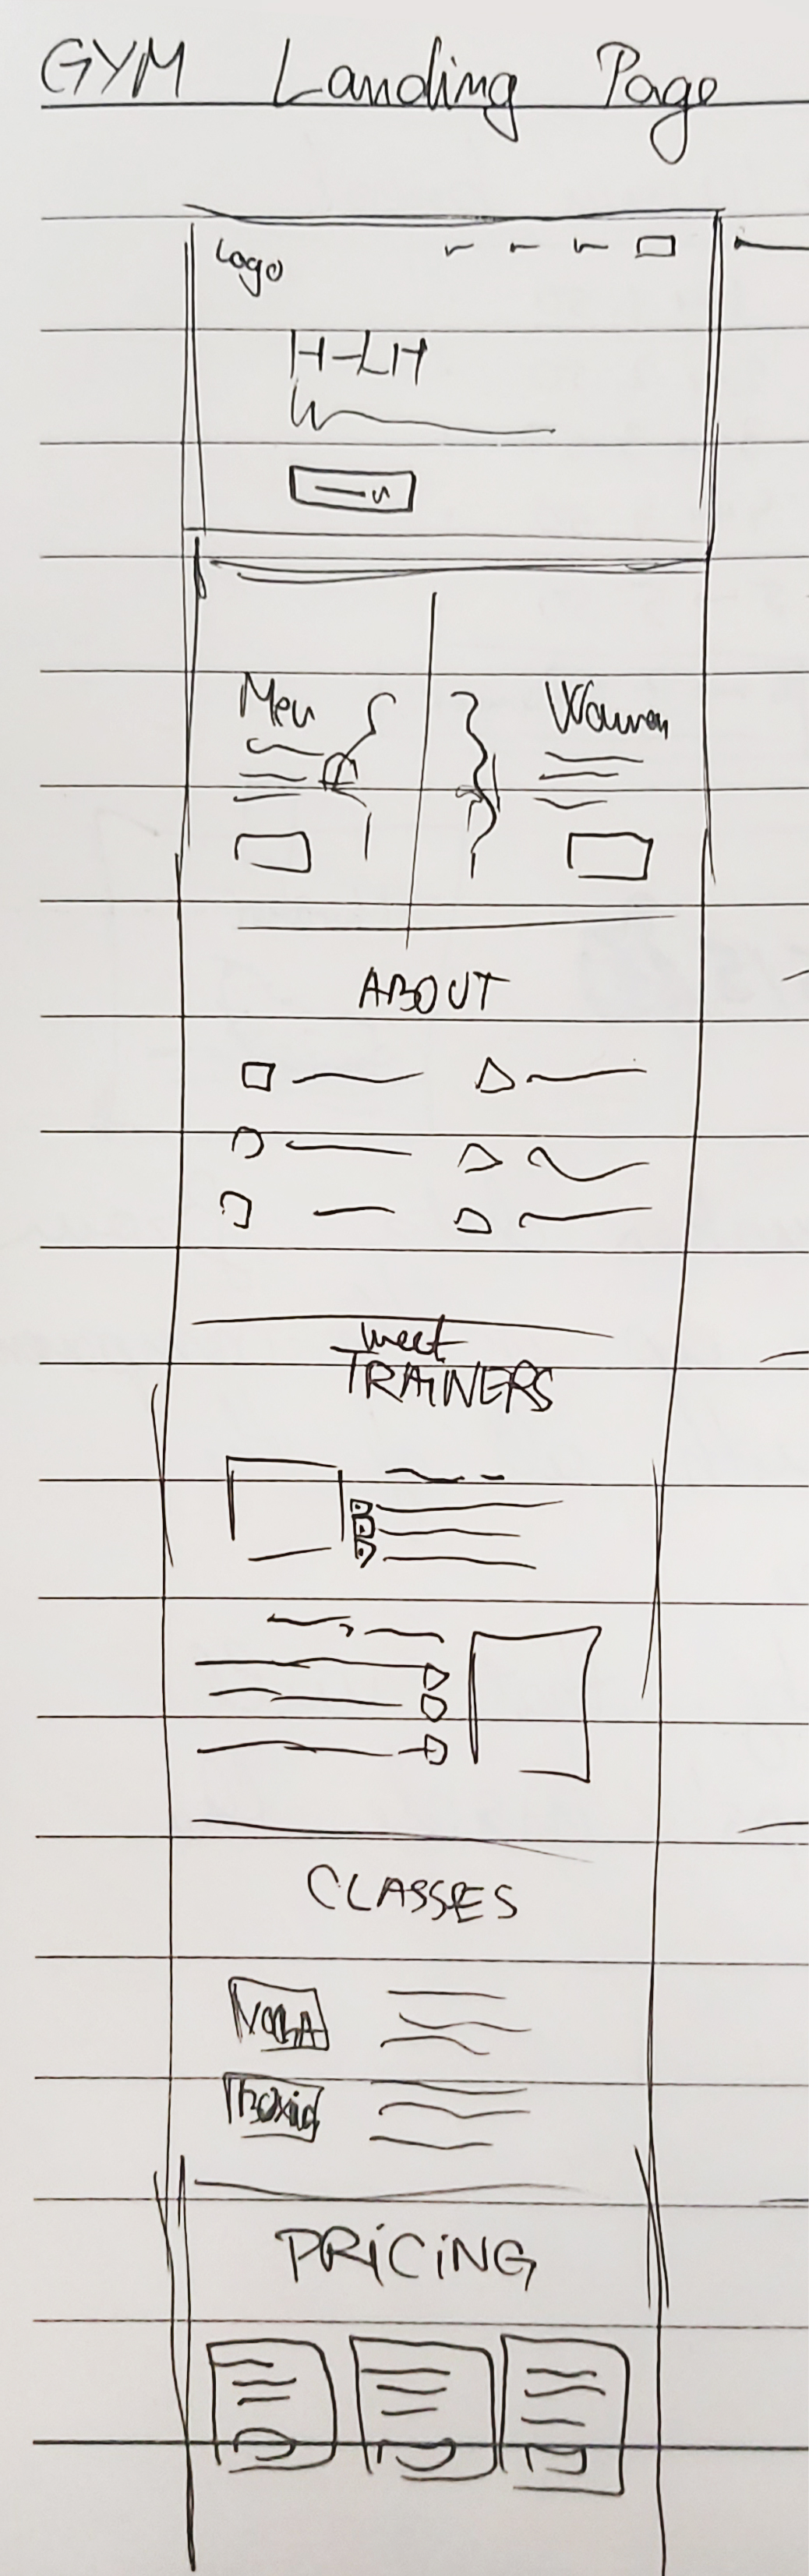 GYM Landing Page
Logo
Men Women
ABOUT
meet
TRAINERS
CLASSES
YOGA
Boxing
PRiCiNG